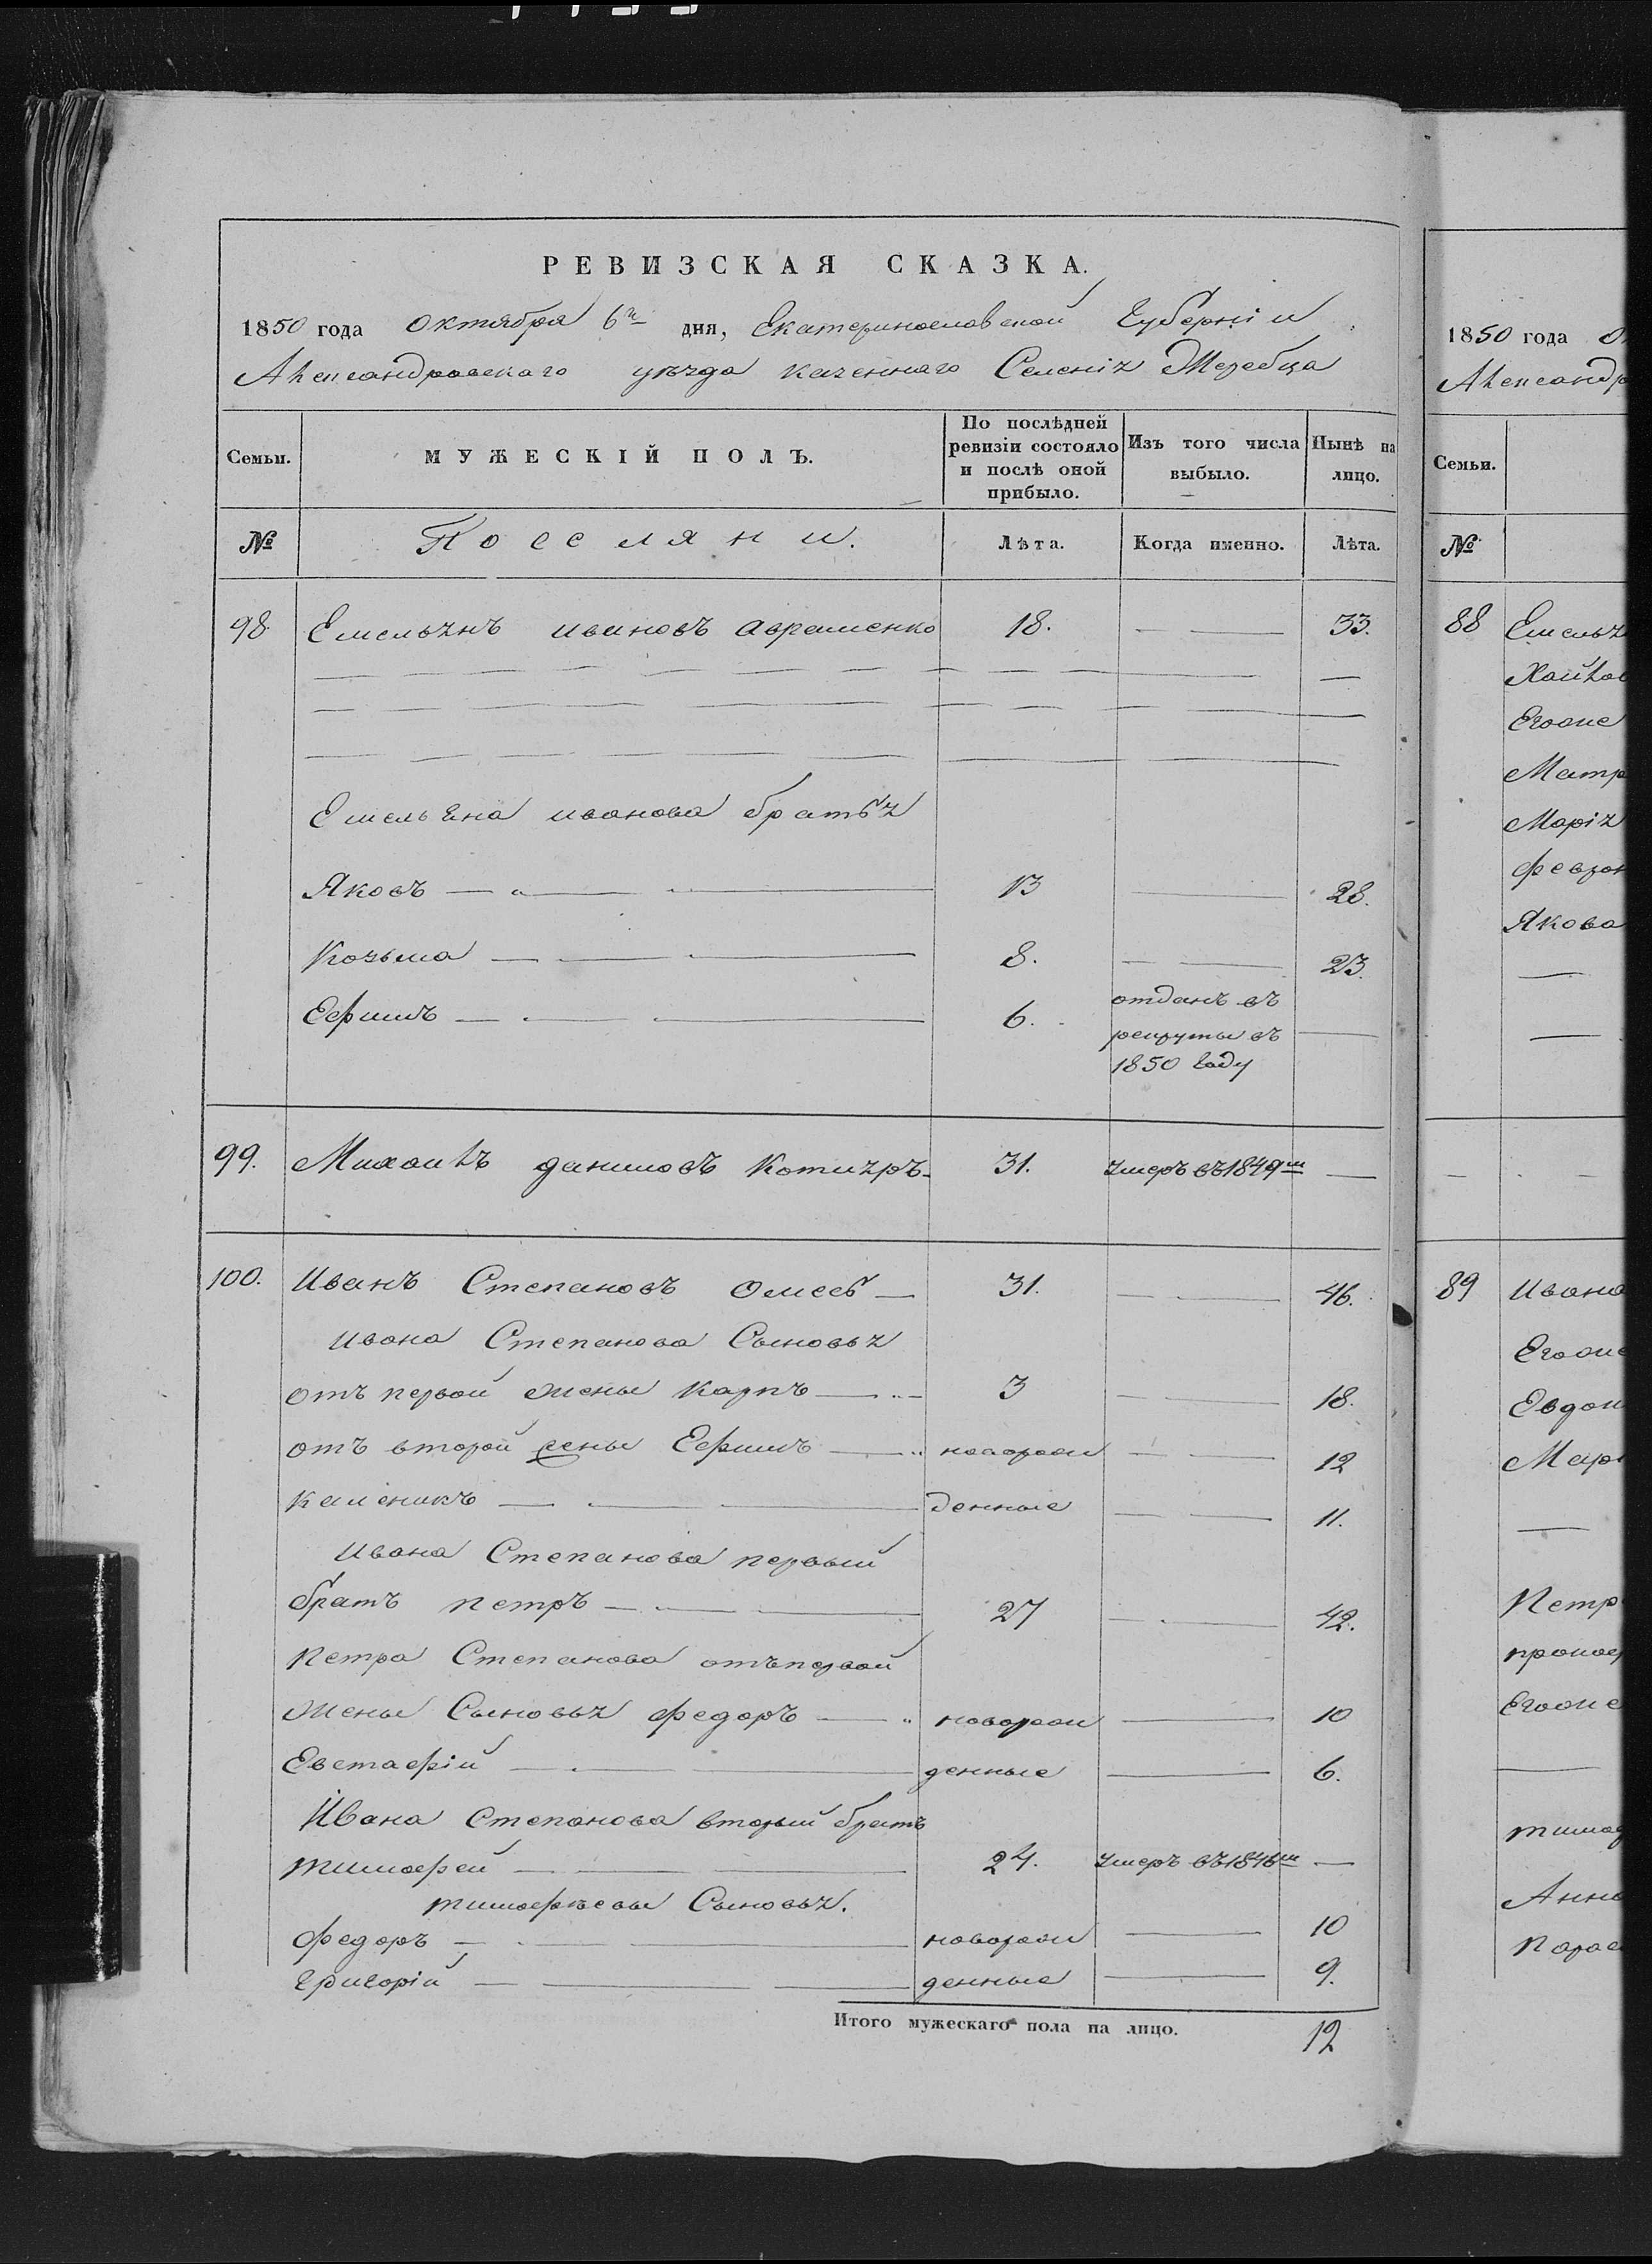 РЕВИЗСКАЯ СКАЗКА.
1850 года Октября 6го дня, Екатеринославской Губерніи
Александровскаго уѣзда казеннаго Селенія Жеребца
Семьи. МУЖЕСКІЙ ПОЛЪ. По послѣдней ревизіи состояло и послѣ оной прибыло. Изъ того числа выбыло. Нынѣ на лицо.
№ Поселяни. Лѣта. Когда именно. Лѣта.
98 Емельянъ Ивановъ Авраменко 18. 33.
Емельяна Иванова братья
Яковъ 13 28.
Козьма 8. 23.
Ефимъ 6. отданъ въ
рекруты въ
1850 Году
99. Михаилъ Даниловъ Котляръ 31. умеръ въ 1849м
100. Иванъ Степановъ 31. 46.
Ивана Степанова Сыновья
отъ первой жены Карпъ 3 18.
отъ второй жены Ефимъ новорож 12
Каленикъ денные 11.
Ивана Степанова первый
братъ Петръ 27 42.
Петра Степанова отъ первой
жены Сыновья Федоръ новорож 10
Евстафій денные 6.
Ивана Степанова вторый братъ
Тимофей 24. умеръ въ 1846м
Тимофѣевы Сыновья.
Федоръ новорож 10
Григорій денные 9.
Итого мужескаго пола на лицо. 12
1850 года
Александр
Семьи.
№
88 Емелья
Матр
Марія
Феврон
Якова
89 Ивана
Евдок
Мар
Петр
Анна
Парас